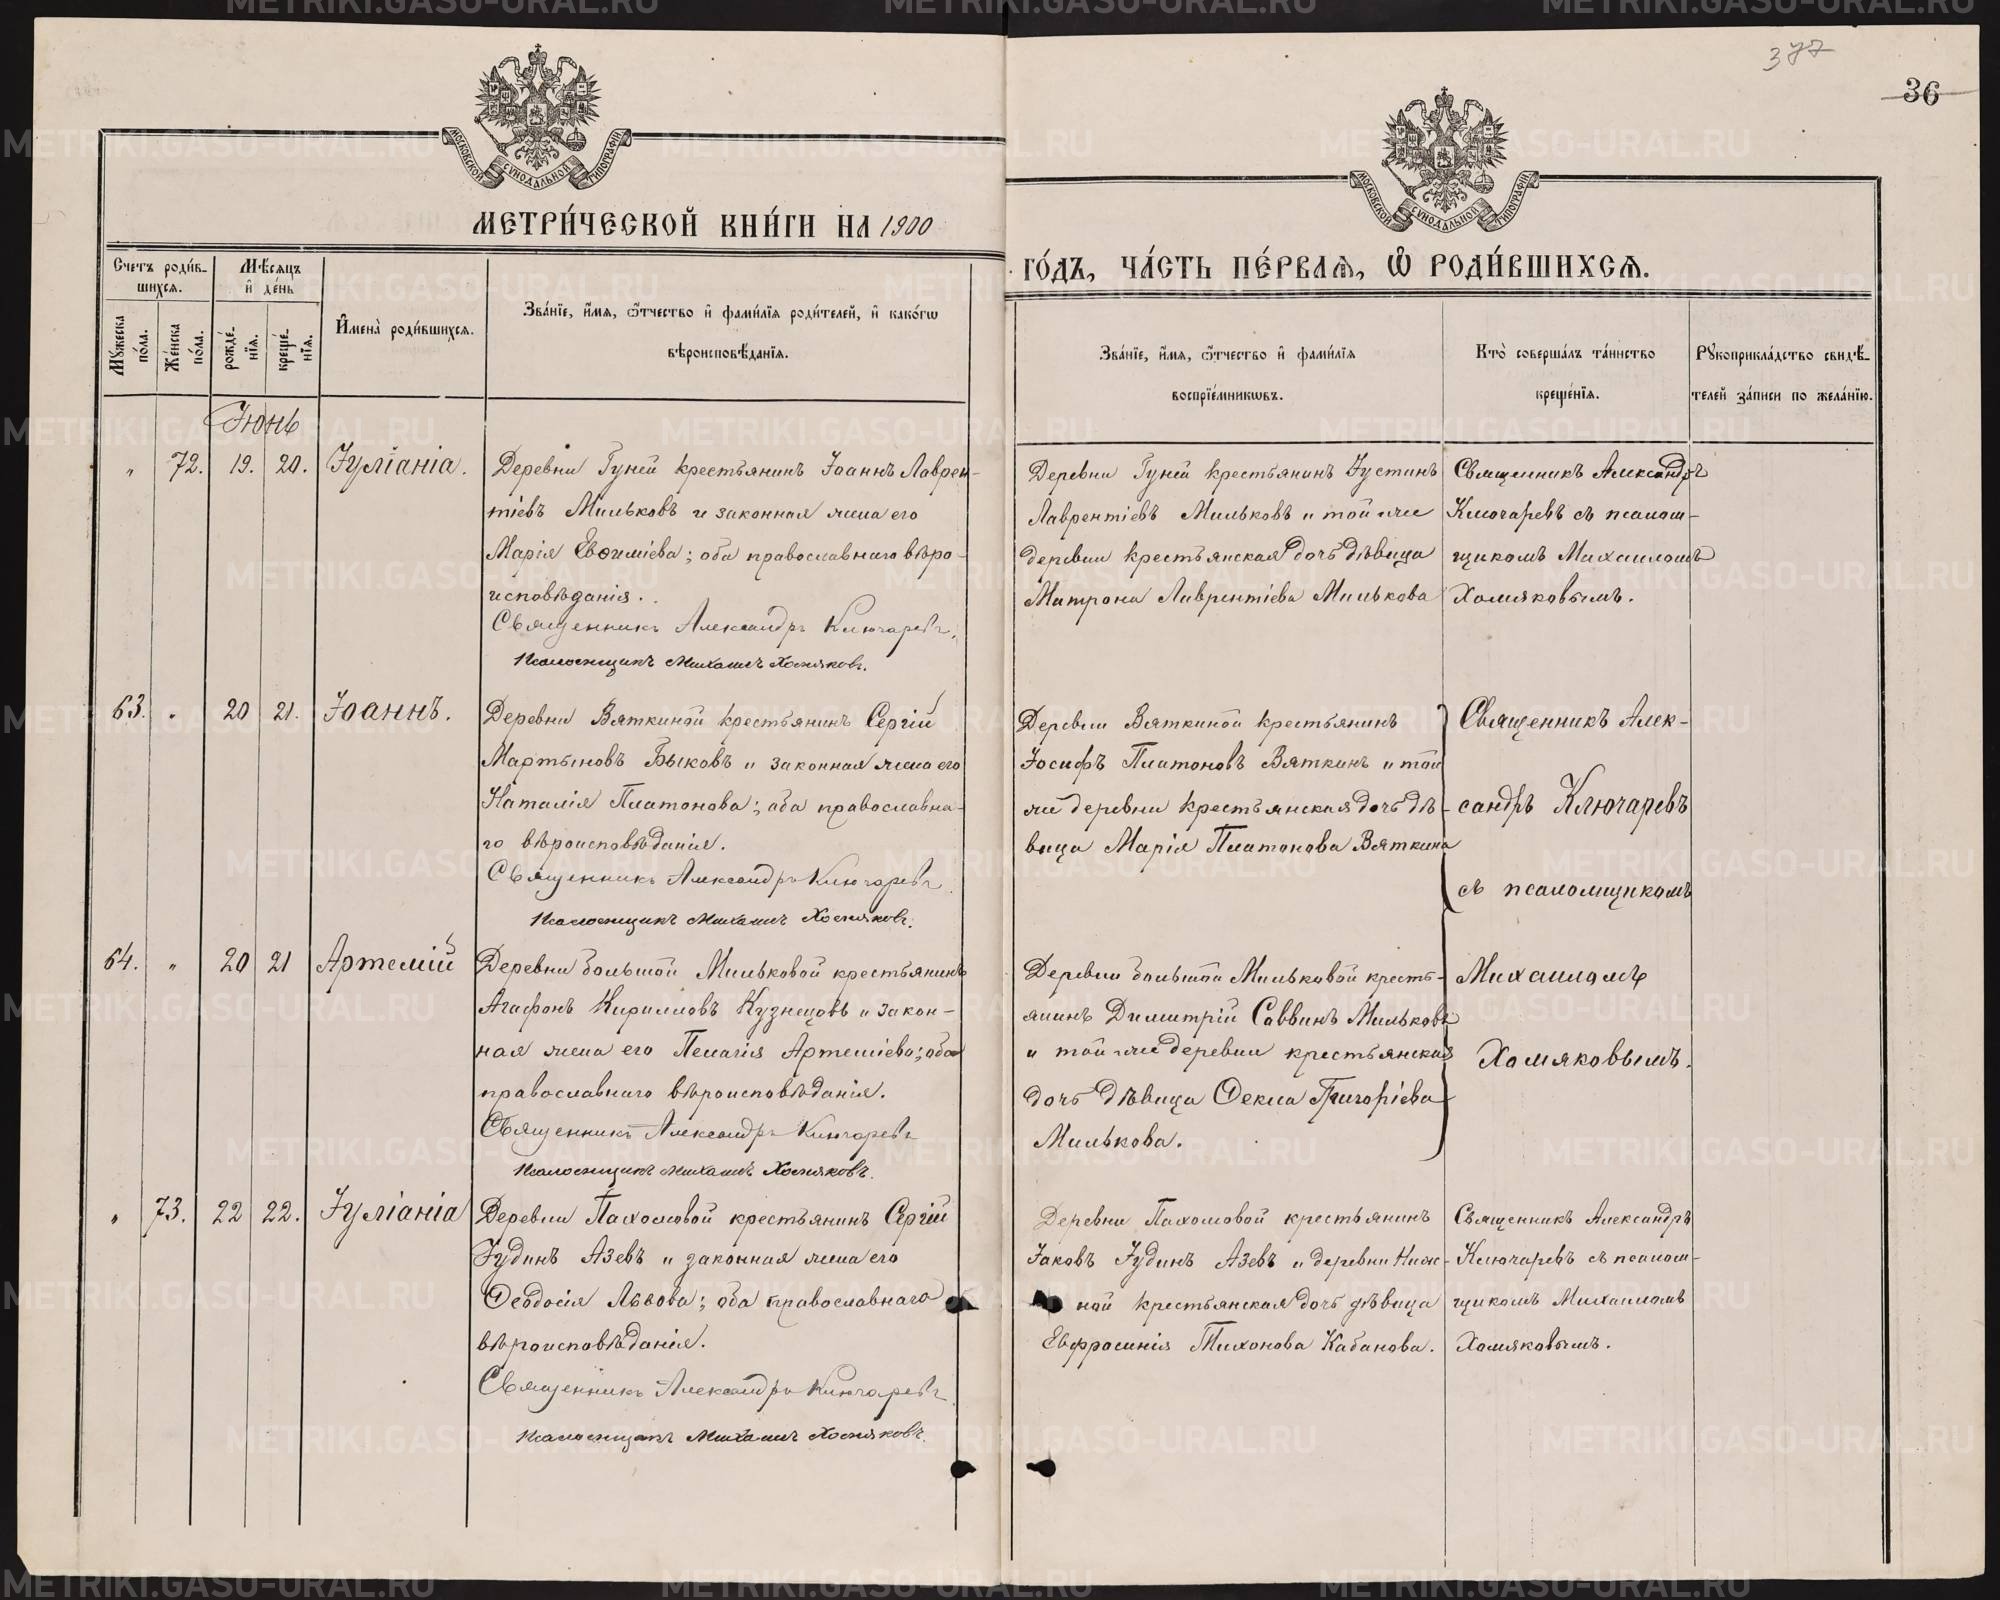 377
36
МОСКОВСКОЙ СѴНОДАЛЬНОЙ ТИПОГРАФІИ
МОСКОВСКОЙ СѴНОДАЛЬНОЙ ТИПОГРАФІИ
МЕТРИ́ЧЕСКОЙ КНИ́ГИ НА 1900
ГО́ДЪ, ЧА́СТЬ ПЕ́РВАѦ, Ѽ РОДИ́ВШИХСѦ.
Счетъ роди́в-
шихсѧ.
Мѣ́сѧцъ
и҆ де́нь
Мꙋжеска
по́ла.
Же́нска
по́ла.
рожде́-
нїѧ.
креще́-
нїѧ.
И҆мена̀ роди́вшихсѧ.
Зва́нїе, и҆́мѧ, ѻ҆́тчество и҆ фами́лїѧ роди́телей, и҆ како́гѡ
вѣроисповѣ́данїѧ.
Зва́нїе, и҆́мѧ, ѻ҆́тчество и҆ фами́лїѧ
воспрїе́мникѡвъ.
Кто̀ соверша́лъ та́инство
креще́нїѧ.
Рꙋкоприкла́дство свидѣ́-
телей за́писи по жела́нїю.
Іюнь
" 72. 19. 20. Іуліанія.
Деревни Гуней крестьянинъ Іоаннъ Лаврен-
тіевъ Мильковъ и законная жена его
Марія Евѳиміева; оба православнаго вѣро-
исповѣданія.
Священникъ Александръ Ключаревъ.
Псаломщикъ Михаилъ Хомяковъ.
Деревни Гуней крестьянинъ Іустинъ
Лаврентіевъ Мильковъ и той же
деревни крестьянская дочь дѣвица
Матрона Лаврентіева Милькова
Священникъ Александръ
Ключаревъ съ псалом-
щикомъ Михаиломъ
Хомяковымъ.
63. " 20 21. Іоаннъ.
Деревни Вяткиной крестьянинъ Сергій
Мартыновъ Быковъ и законная жена его
Наталія Платонова; оба православна-
го вѣроисповѣданія.
Священникъ Александръ Ключаревъ
Псаломщикъ Михаилъ Хомяковъ.
Деревни Вяткиной крестьянинъ
Іосифъ Платоновъ Вяткинъ и той
же деревни крестьянская дочь дѣ-
вица Марія Платонова Вяткина
Священникъ Алек-
сандръ Ключаревъ
съ псаломщикомъ
64. " 20 21 Артемій
Деревни Большой Мильковой крестьянинъ
Агафонъ Кирилловъ Кузнецовъ и закон-
ная жена его Пелагія Артеміева; оба
православнаго вѣроисповѣданія.
Священникъ Александръ Ключаревъ
Псаломщикъ Михаилъ Хомяковъ.
Деревни Большой Мильковой кресть-
янинъ Димитрій Саввинъ Мильковъ
и той же деревни крестьянская
дочь дѣвица Ѳекла Григоріева
Милькова.
Михаиломъ
Хомяковымъ.
" 73. 22 22. Іуліанія
Деревни Пахомовой крестьянинъ Сергій
Іудинъ Азевъ и законная жена его
Ѳеодосія Львова; оба православнаго
вѣроисповѣданія.
Священникъ Александръ Ключаревъ
Псаломщикъ Михаилъ Хомяковъ.
Деревни Пахомовой крестьянинъ
Іаковъ Іудинъ Азевъ и деревни Ниж-
ной крестьянская дочь дѣвица
Евфросинія Тихонова Кабанова.
Священникъ Александръ
Ключаревъ съ псалом-
щикомъ Михаиломъ
Хомяковымъ.
METRIKI.GASO-URAL.RU